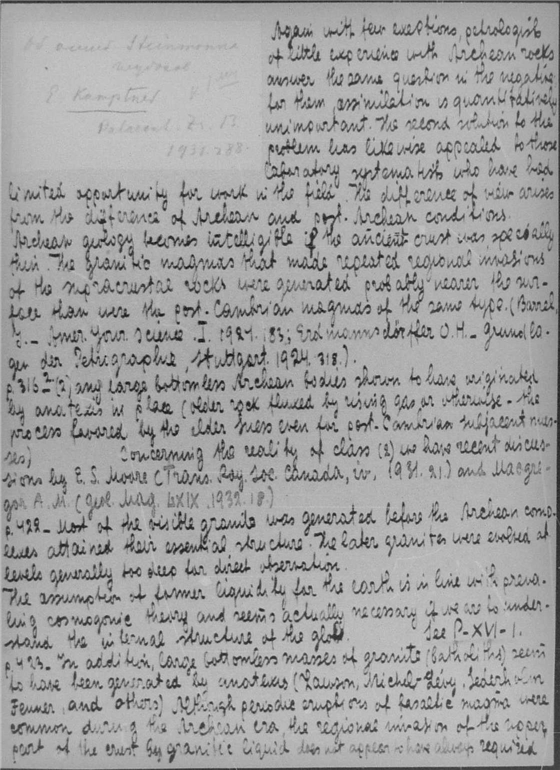 P. Kamptner
Palaeont. Zs. 13.
1931. 288.
Again with few exeptions, petrologists
of little experience with Archean rocks
answer the same question in the negative
for them assimilation is quantitatively
unimportant. The second solution to the
problem has likewise appealed to those
laboratory systematists who have had
limited opportunity for work in the field. The difference of view arises
from the difference of Archean and post-Archean conditions.
Archean geology becomes intelligible if the ancient crust was specially
thin. The granitic magmas that made repeated regional invasions
of the supracrustal rocks were generated probably nearer the sur-
face than were the post-Cambrian magmas of the same type. (Barrel,
J. - Amer. Jour. Science. I. 1921. 183; Erdmannsdörffer O.H. - Grundla-
gen der Petrographie, Stuttgart. 1924. 318.).
p. 316 (2) any large bottomless Archean bodies shown to have originated
by anatexis in place (older rock fluxed by rising gas or otherwise - the
process favored by the elder Suess even for post-Cambrian subjacent mas-
ses) Concerning the reality of class (2) we have recent discus-
sions by E. S. Moore (Trans. Roy. Soc. Canada, iv, 1931. 21.) and Macgre-
gor A. M. (Geol. Mag. LXIX. 1932. 18.)
p. 422 - Most of the visible granite was generated before the Archean
attained their essential structure. The later granites were evolved at
levels generally too deep for direct observation.
The assumption of former liquidity for the earth is in line with prevai-
ling cosmogonic theory and seems actually necessary if we are to under-
stand the internal structure of the globe. See P-XVI-1.
p. 423 - In addition, large bottomless masses of granite (batholiths) seem
to have been generated by anatexis (Lawson, Michel-Lévy, Sederholm
Fenner, and others) Although periodic eruptions of basaltic magma were
common during the Archean era, the regional invasion of the upper
part of the crust by granitic liquid does not appear to have always required